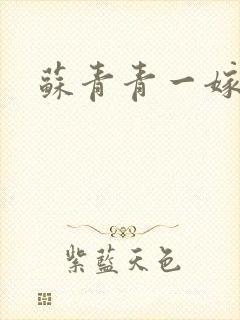 蘇青青一嫁
紫藍天色